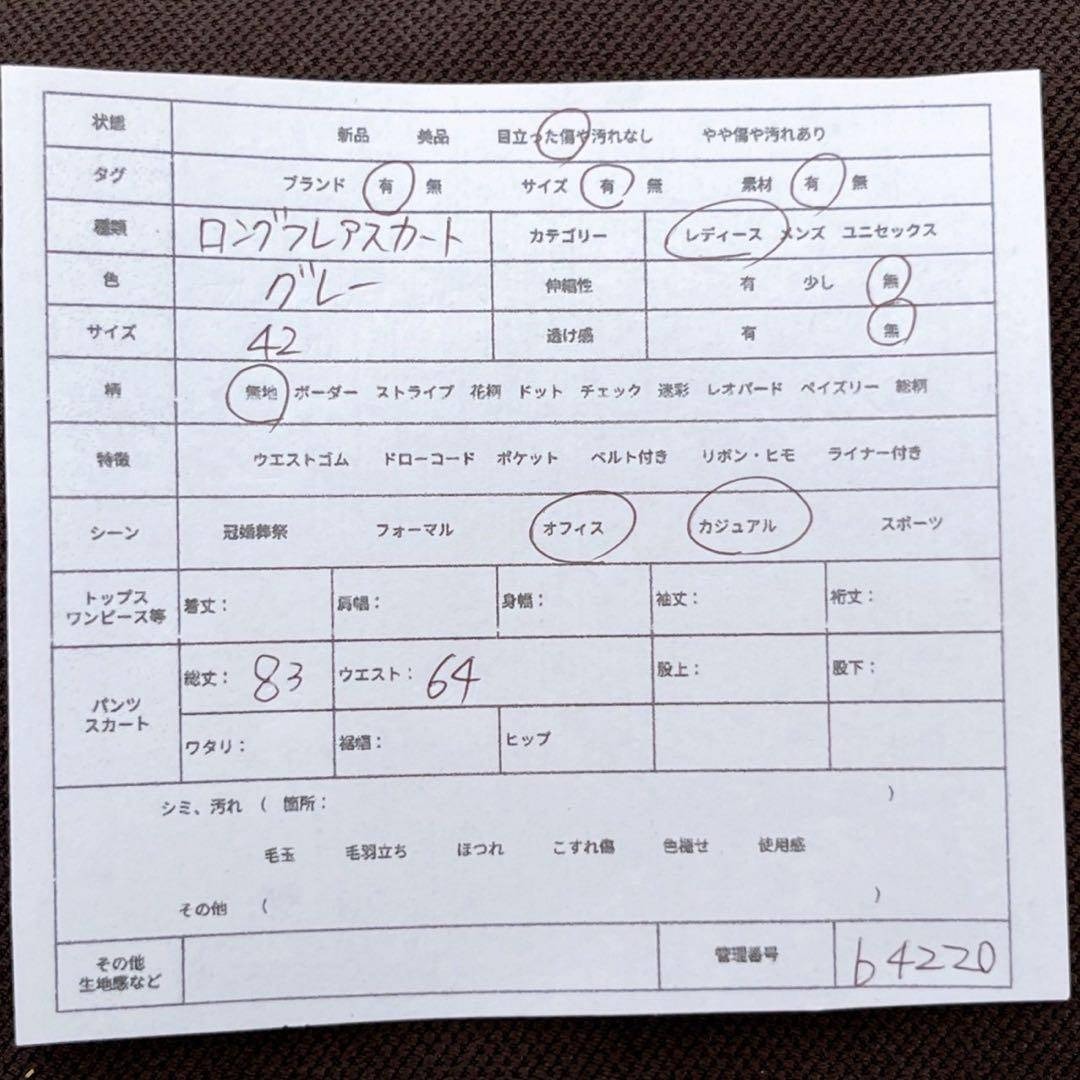 状態 新品 美品 目立った傷や汚れなし やや傷や汚れあり
タグ ブランド 有 無 サイズ 有 無 素材 有 無
種類 ロングフレアスカート カテゴリー レディース メンズ ユニセックス
色 グレー 伸縮性 有 少し 無
サイズ 42 透け感 有 無
柄 無地 ボーダー ストライプ 花柄 ドット チェック 迷彩 レオパード ペイズリー 総柄
特徴 ウエストゴム ドローコード ポケット ベルト付き リボン・ヒモ ライナー付き
シーン 冠婚葬祭 フォーマル オフィス カジュアル スポーツ
トップス
ワンピース等 着丈： 肩幅： 身幅： 袖丈： 裄丈：
パンツ
スカート 総丈： 83 ウエスト： 64 股上： 股下：
ワタリ： 裾幅： ヒップ
シミ、汚れ （ 箇所： ）
毛玉 毛羽立ち ほつれ こすれ傷 色褪せ 使用感
その他 （ ）
その他
生地感など 管理番号 b4220